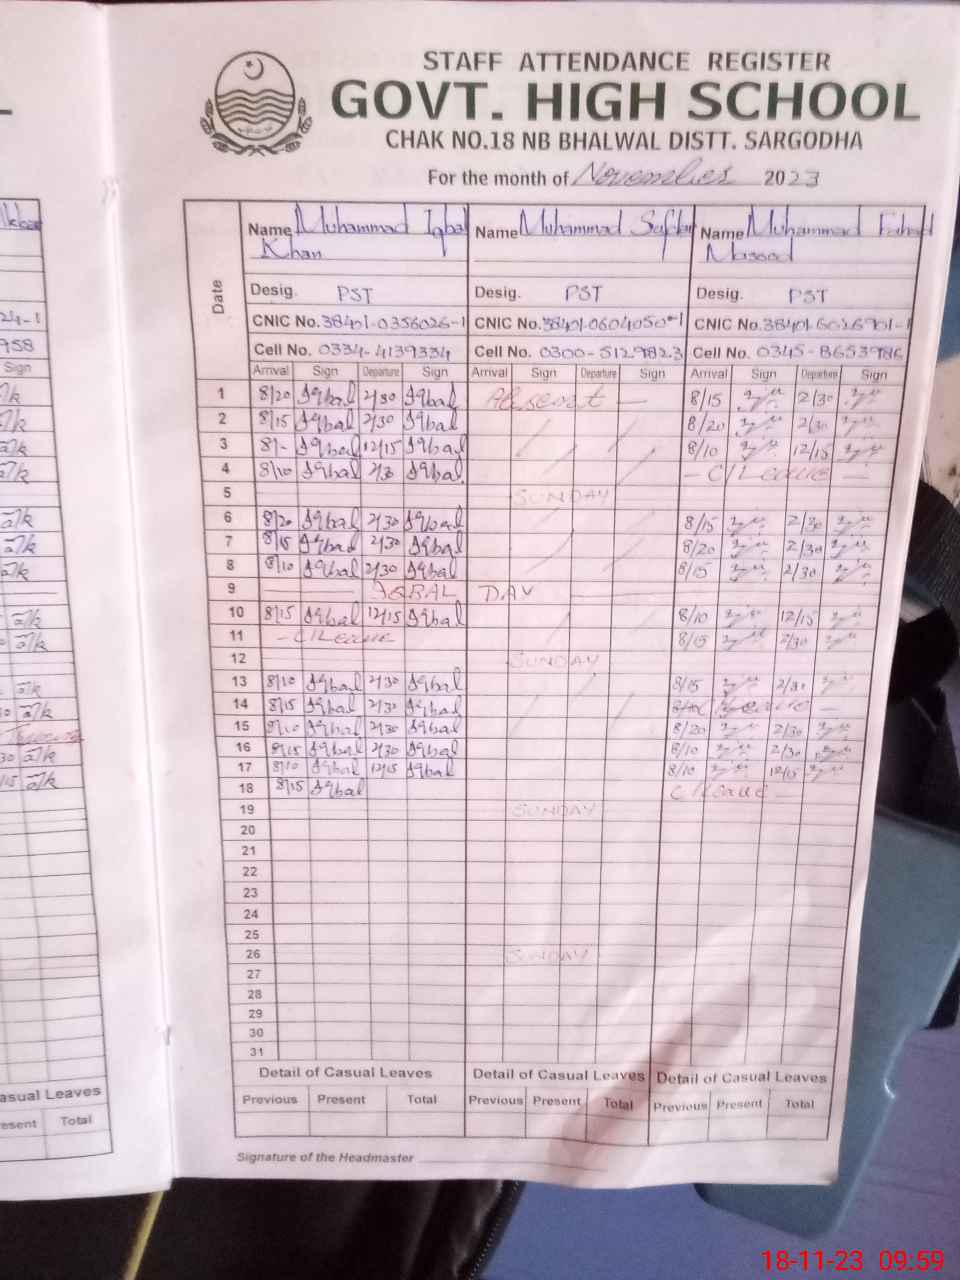 STAFF ATTENDANCE REGISTER
GOVT. HIGH SCHOOL
CHAK NO.18 NB BHALWAL DISTT. SARGODHA
For the month of November 2023
Date
Name Muhammad Iqbal Khan
Name Muhammad Safdar
Name Muhammad Fahad Masood
Desig. PST
Desig. PST
Desig. PST
CNIC No. 38401-0356026-1
CNIC No. 38401-0604050-1
CNIC No. 38401-6026901-1
Cell No. 0334-4139334
Cell No. 0300-5129823
Cell No. 0345-8653986
Arrival Sign Departure Sign Arrival Sign Departure Sign Arrival Sign Departure Sign
1 8/20 Iqbal 2/30 Iqbal Absent — 8/15 2/30
2 8/15 Iqbal 2/30 Iqbal 8/20 2/30
3 8/- Iqbal 12/15 Iqbal 8/10 12/15
4 8/10 Iqbal 2/30 Iqbal - C/Leave -
5 SUNDAY
6 8/20 Iqbal 2/30 Iqbal 8/15 2/30
7 8/15 Iqbal 2/30 Iqbal 8/20 2/30
8 8/10 Iqbal 2/30 Iqbal 8/15 2/30
9 IQBAL DAY
10 8/15 Iqbal 12/15 Iqbal 8/10 12/15
11 - C/Leave 8/15 2/30
12 SUNDAY
13 8/10 Iqbal 2/30 Iqbal 8/15 2/30
14 8/15 Iqbal 2/30 Iqbal C/Leave -
15 8/10 Iqbal 2/30 Iqbal 8/20 2/30
16 8/15 Iqbal 2/30 Iqbal 8/10 2/30
17 8/10 Iqbal 12/15 Iqbal 8/10 12/15
18 8/15 Iqbal C/Leave -
19 SUNDAY
20
21
22
23
24
25
26 SUNDAY
27
28
29
30
31
Detail of Casual Leaves Detail of Casual Leaves Detail of Casual Leaves
Previous Present Total Previous Present Total Previous Present Total
Signature of the Headmaster
24-1
958
Sign
asual Leaves
esent Total
18-11-23 09:59